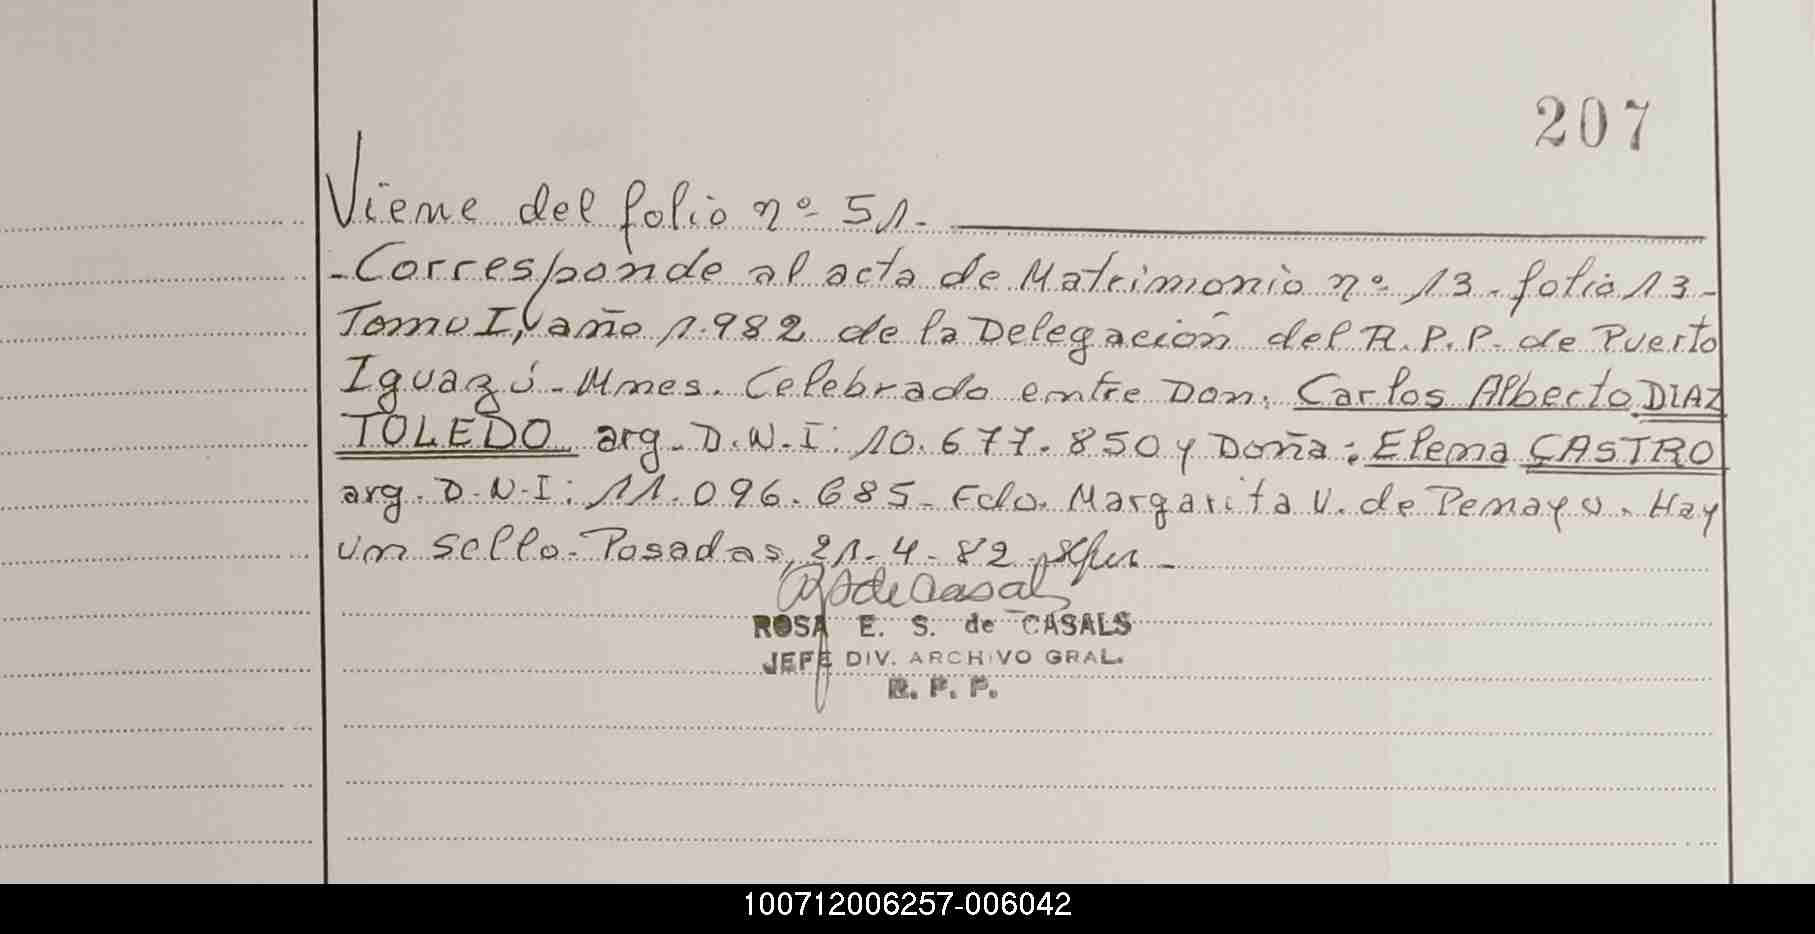 207
Viene del folio nº 51.
-Corresponde al acta de Matrimonio nº 13. folio 13-
Tomo I, año 1.982 de la Delegación del R.P.P. de Puerto
Iguazú- Mnes. Celebrado entre Don: Carlos Alberto DIAZ
TOLEDO arg- D.N.I: 10.677.850 y Doña: Elena CASTRO
arg. D-N-I: 11.096.685- Fdo. Margarita V. de Penayo. Hay
un sello- Posadas, 21-4-82
ROSA E. S. de CASALS
JEFE DIV. ARCHIVO GRAL.
R. P. P.
100712006257-006042